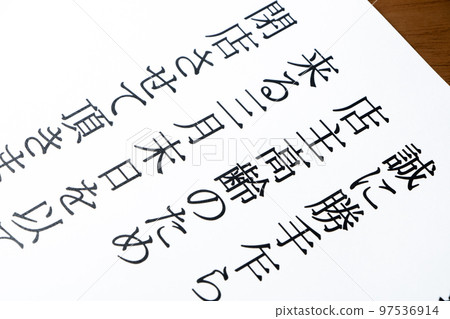 誠に勝手乍ら
店主高齢のため
来る三月末日を以て
閉店させて頂きま
97536914